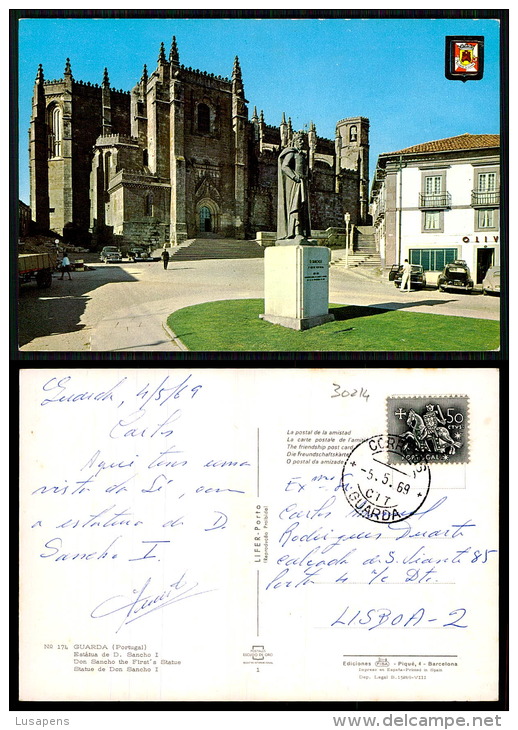 Guarda, 4/5/69
Carlos
Aqui tens uma
vista da Sé, com
a estatua de D.
Sancho I.
Nº 174 GUARDA (Portugal)
Estátua de D. Sancho I
Don Sancho the First's Statue
Statue de Don Sancho I
LIFER-Porto
(Reprodução Proibida)
ESCUDO DE ORO
1
30214
La postal de la amistad
La carte postale de l'amitié
The friendship post card
Die Freundschaftskarte
O postal da amizade
$50
CTVS.
PORTUGAL
CORREIOS
-5.5.69
CTT
GUARDA
Exmo
Carlos
Rodrigues Duarte
calçada de S. Vicente 85
Porta 4 7º Dto.
LISBOA-2
Ediciones FISA - Piqué, 4 - Barcelona
Impreso en España-Printed in Spain
Dep. Legal B.
Lusapens